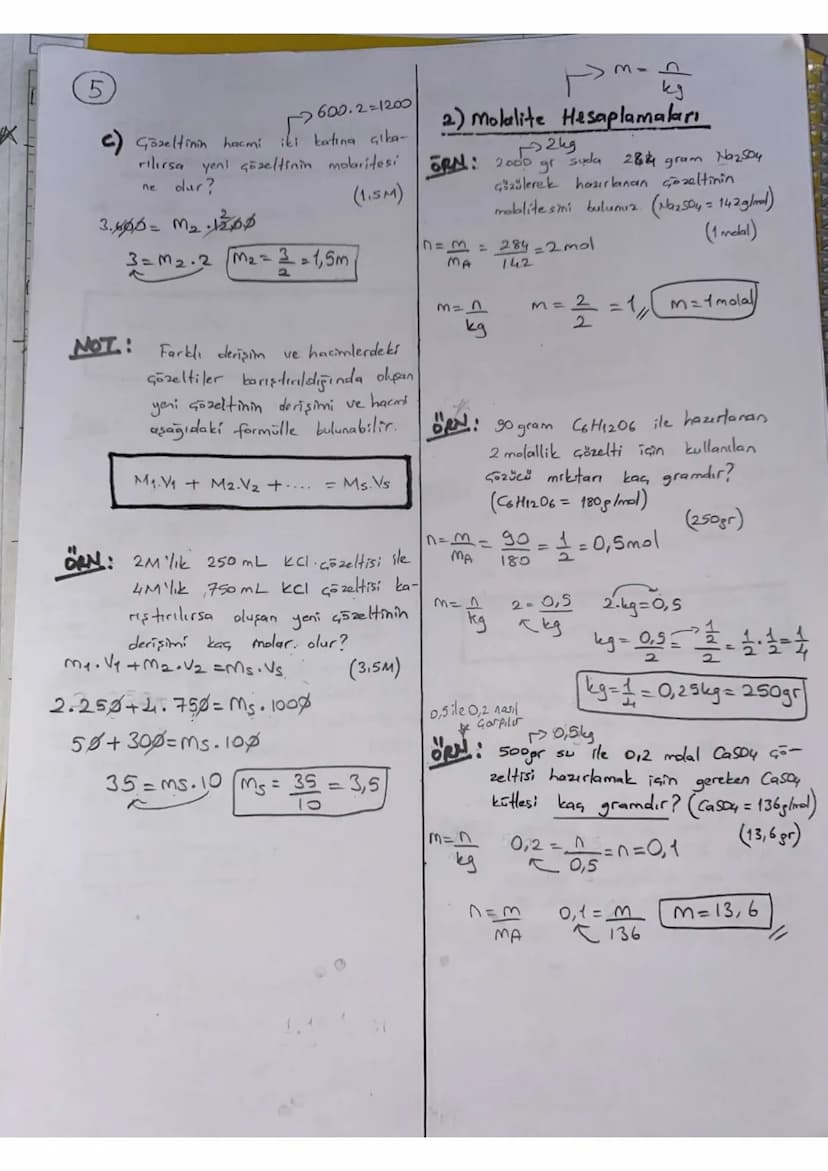 5
→ 600.2=1200
c) Çözeltinin hacmi iki katına çıka-
rılırsa yeni çözeltinin molaritesi
ne olur?
(1.5M)
3.600 = M2.1200 2
3=M2.2 M2=3/2=1,5m
NOT: Farklı derişim ve hacimlerdeki
çözeltiler karıştırıldığında oluşan
yeni çözeltinin derişimi ve hacmi
aşağıdaki formülle bulunabilir.
M1.V1 + M2.V2 + .... = Ms.Vs
ÖRN: 2M'lık 250 mL KCl çözeltisi ile
4M'lık 750 mL KCl çözeltisi ka-
rıştırılırsa oluşan yeni çözeltinin
derişimi kaç molar olur?
M1.V1+M2.V2=Ms.Vs (3.5M)
2.250+4.750=Ms.1000
50+300=Ms.100
35=Ms.10 Ms=35/10=3,5
→ m=n/kg
2) Molalite Hesaplamaları
→ 2kg
ÖRN: 2000 gr suda 284 gram Na2SO4
çözülerek hazırlanan çözeltinin
molalitesini bulunuz (Na2SO4=142g/mol)
(1 molal)
n=m/MA=284/142=2mol
m=n/kg m=2/2=1 m=1molal
ÖRN: 90 gram C6H12O6 ile hazırlanan
2 molallik çözelti için kullanılan
çözücü miktarı kaç gramdır?
(C6H12O6 = 180g/mol)
(250gr)
n=m/MA=90/180=1/2=0,5mol
m=n/kg 2=0,5/kg 2.kg=0,5
kg=0,5/2=1/2/2=1/2.1/2=1/4
kg=1/4=0,25kg=250gr
0,5 ile 0,2 nasıl
çarpılır
→ 0,5kg
ÖRN: 500gr su ile 0,2 molal CaSO4 çö-
zeltisi hazırlamak için gereken CaSO4
kütlesi kaç gramdır? (CaSO4=136g/mol)
(13,6gr)
m=n/kg 0,2=n/0,5=n=0,1
n=m/MA 0,1=m/136 m=13,6